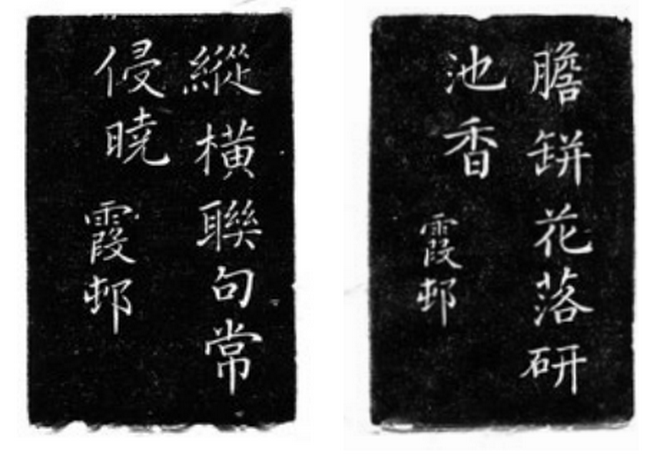 膽缾花落研
池香 霞邨
縱橫聯句常
侵曉 霞邨